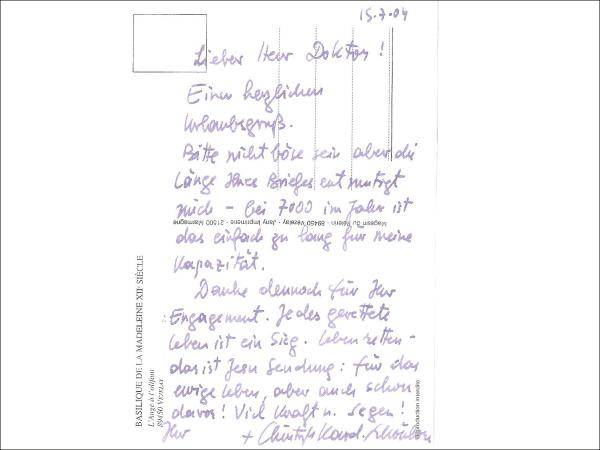 15.7.04
Lieber Herr Doktor!
Einen herzlichen
Urlaubsgruß.
Bitte nicht böse sein aber die
Länge Ihres Briefes entmutigt
mich - bei 7000 im Jahr ist
das einfach zu lang für meine
Kapazität.
Danke dennoch für Ihr
Engagement. Jedes gerettete
Leben ist ein Sieg. Leben retten -
das ist Jesu Sendung: für das
ewige Leben, aber auch schon
davor! Viel Kraft u. Segen!
Ihr + Christoph Kard. Schönborn
BASILIQUE DE LA MADELEINE XIIe SIÈCLE
L'Ange à l'olifant
89450 VEZELAY
Magasin du Pèlerin - 89450 Vézelay Jany Imprimerie - 21500 Marmagne
reproduction interdite